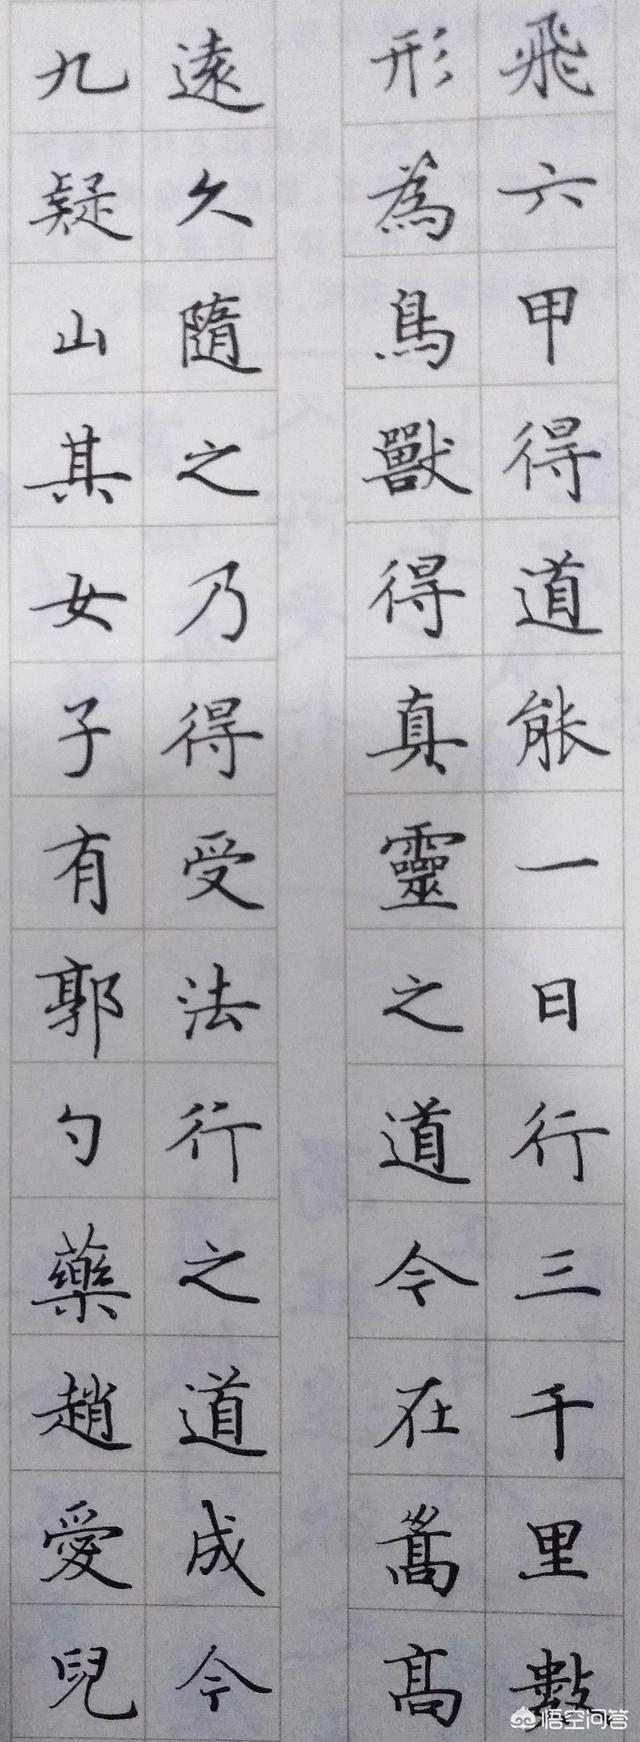 飛六甲得道能一日行三千里數
形為鳥獸得真靈之道今在嵩高
遠久隨之乃得受法行之道成今
九疑山其女子有郭勺藥趙愛兒
悟空问答